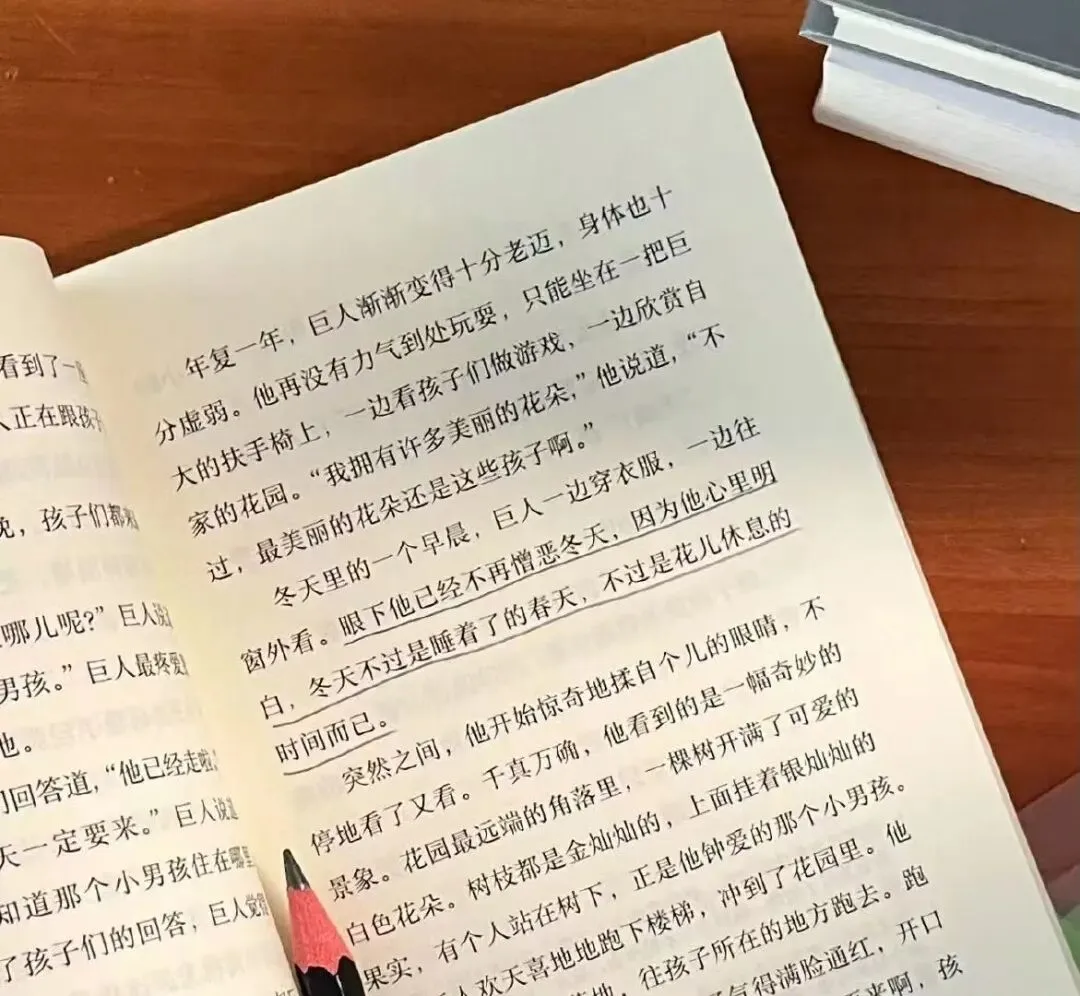 看到了一
人正在跟孩子
晚，孩子们都来
哪儿呢？”巨人说
男孩。”巨人最疼爱
他。
们回答道，“他已经走啦
天一定要来。”巨人说道
知道那个小男孩住在哪里
了孩子们的回答，巨人觉得
年复一年，巨人渐渐变得十分老迈，身体也十
分虚弱。他再没有力气到处玩耍，只能坐在一把巨
大的扶手椅上，一边看孩子们做游戏，一边欣赏自
家的花园。“我拥有许多美丽的花朵，”他说道，“不
过，最美丽的花朵还是这些孩子啊。”
冬天里的一个早晨，巨人一边穿衣服，一边往
窗外看。眼下他已经不再憎恶冬天，因为他心里明
白，冬天不过是睡着了的春天，不过是花儿休息的
时间而已。
突然之间，他开始惊奇地揉自个儿的眼睛，不
停地看了又看。千真万确，他看到的是一幅奇妙的
景象。花园最远端的角落里，一棵树开满了可爱的
白色花朵。树枝都是金灿灿的，上面挂着银灿灿的
果实，有个人站在树下，正是他钟爱的那个小男孩。
人欢天喜地地跑下楼梯，冲到了花园里。他
地，往孩子所在的地方跑去。跑
气得满脸通红，开口
来啊，孩